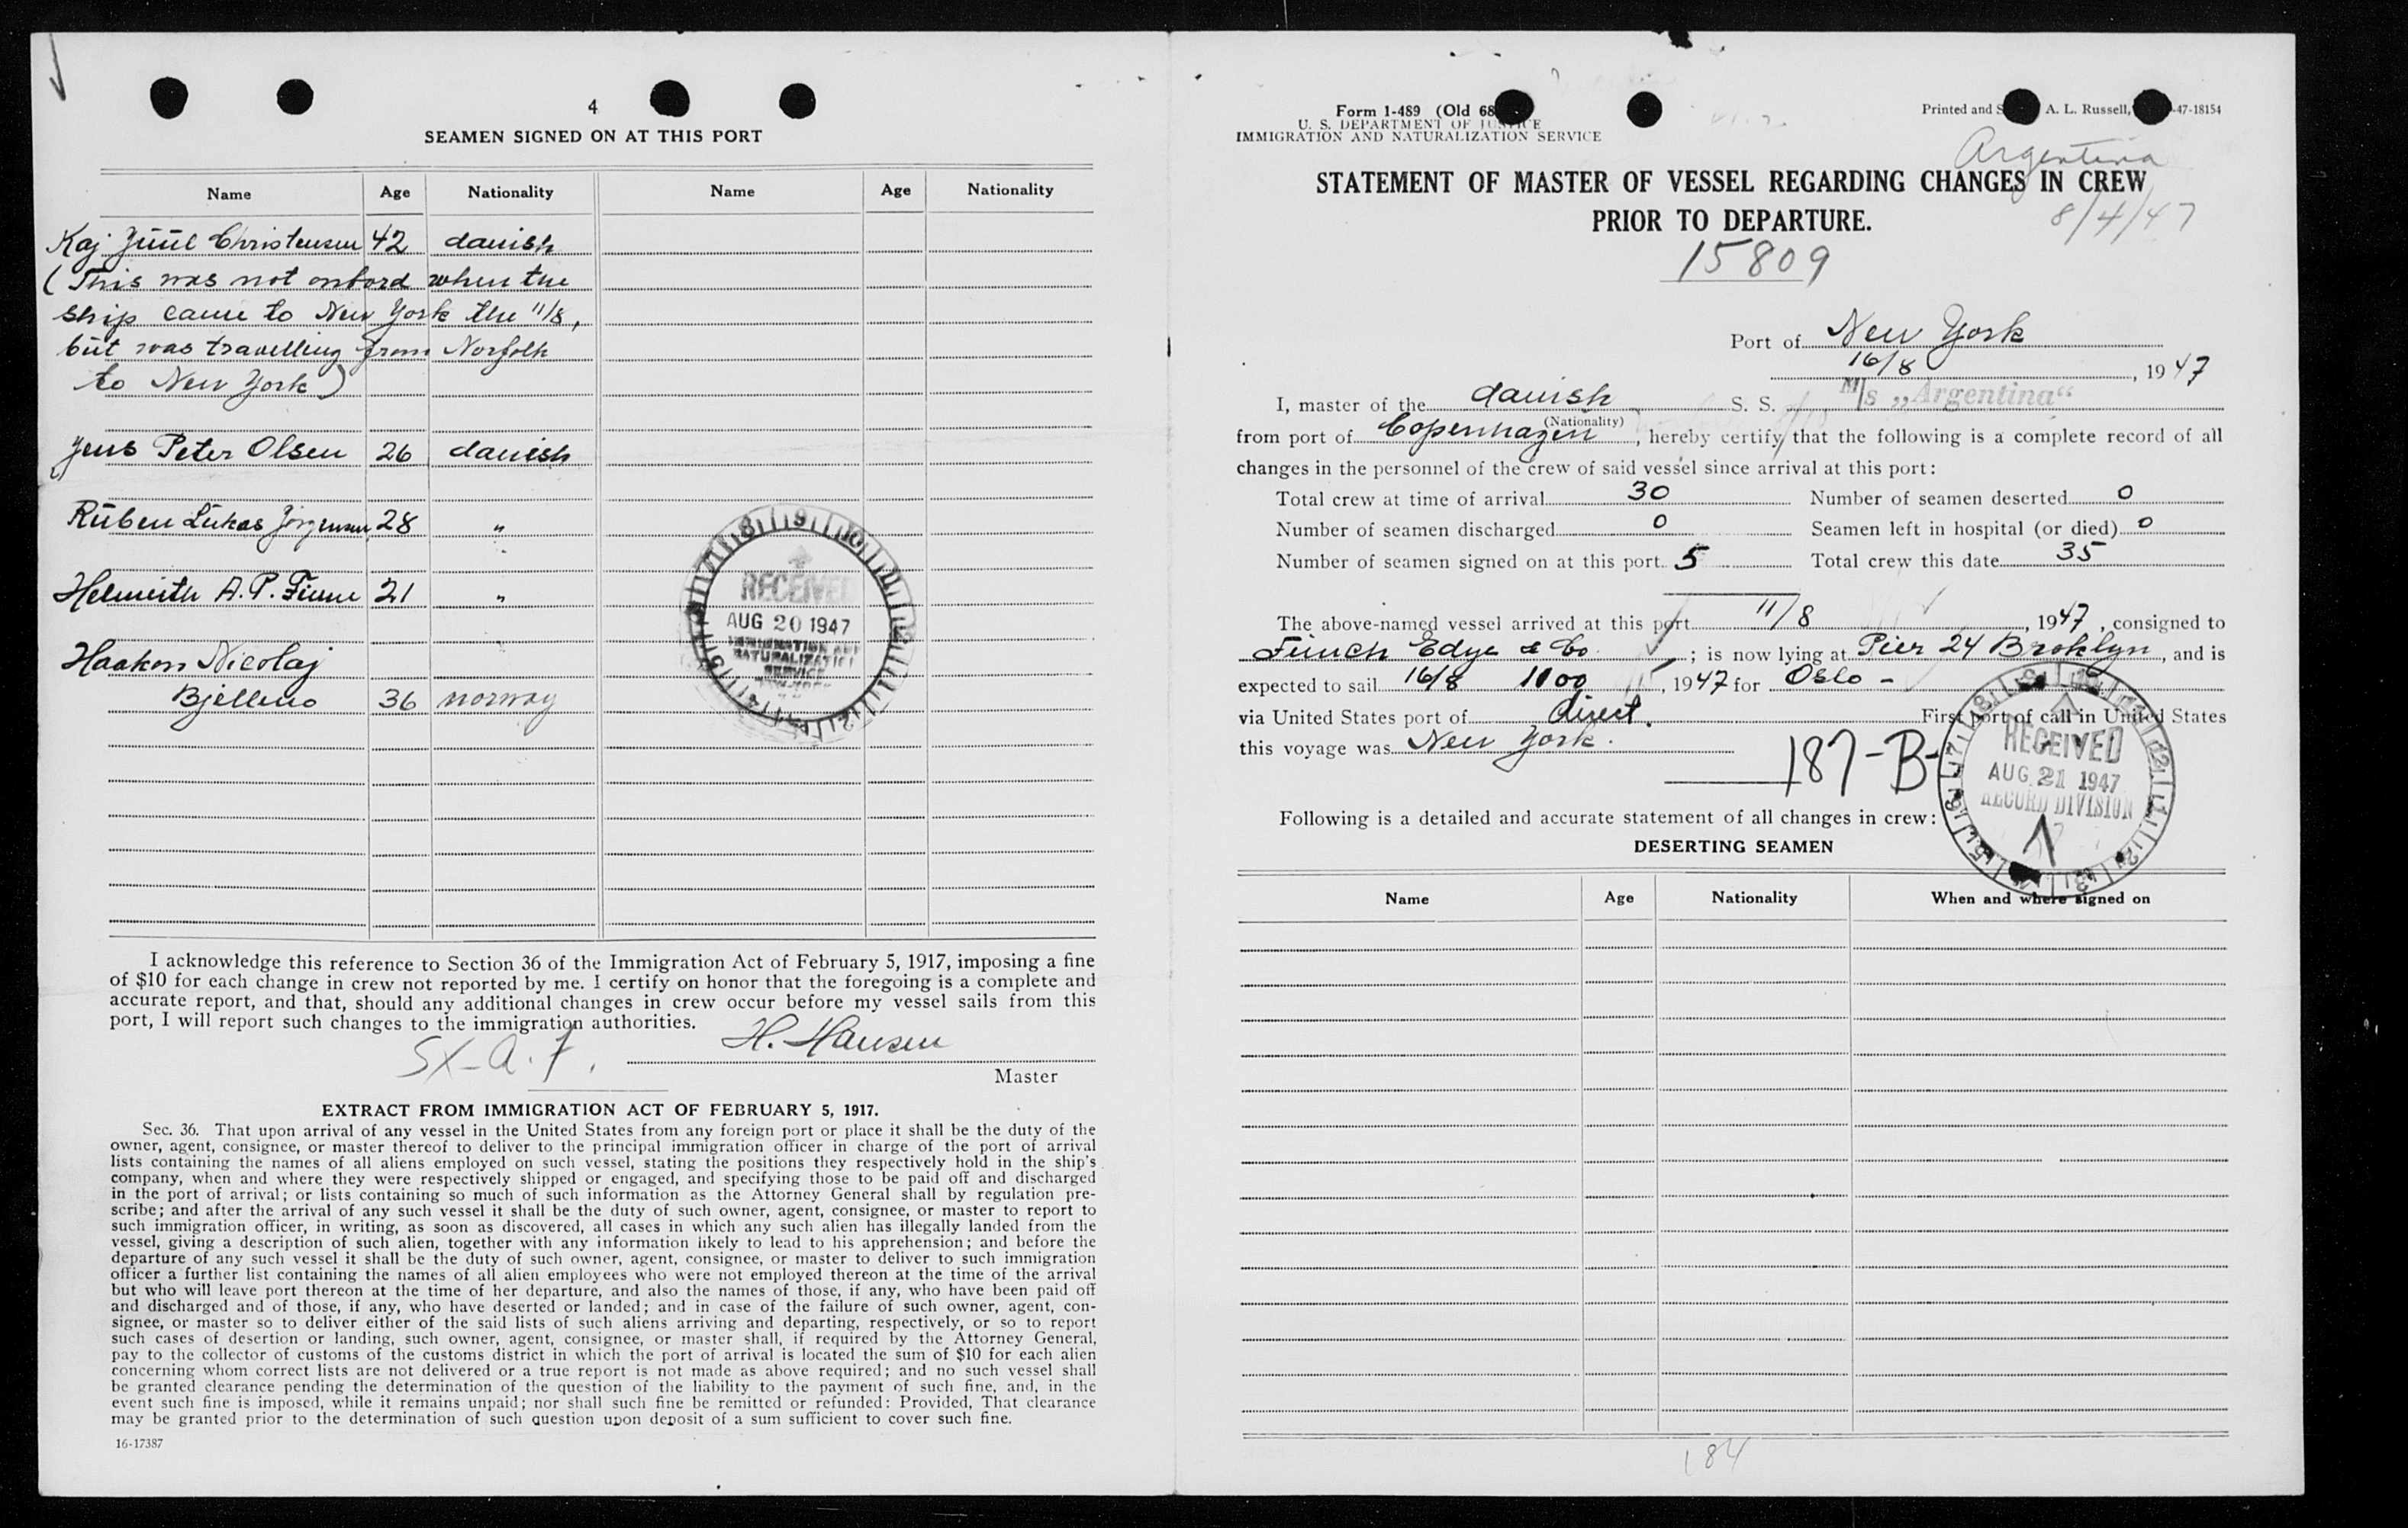 4
SEAMEN SIGNED ON AT THIS PORT
Name Age Nationality Name Age Nationality
Kaj Jüül Christensen 42 danish
(This was not onbord when the
ship came to New York the 11/8,
büt was travelling from Norfolk
to New York)
Jens Peter Olsen 26 danish
Rüben Lükas Jörgensen 28 "
A. P. 21 "
Haakon Nicolaj
36 norway
RECEIVED
AUG 20 1947
IMMIGRATION AND
NATURALIZATION
SERVICE
I acknowledge this reference to Section 36 of the Immigration Act of February 5, 1917, imposing a fine
of $10 for each change in crew not reported by me. I certify on honor that the foregoing is a complete and
accurate report, and that, should any additional changes in crew occur before my vessel sails from this
port, I will report such changes to the immigration authorities.
H. Hansen
SX-a.7.
Master
EXTRACT FROM IMMIGRATION ACT OF FEBRUARY 5, 1917.
Sec. 36. That upon arrival of any vessel in the United States from any foreign port or place it shall be the duty of the
owner, agent, consignee, or master thereof to deliver to the principal immigration officer in charge of the port of arrival
lists containing the names of all aliens employed on such vessel, stating the positions they respectively hold in the ship's
company, when and where they were respectively shipped or engaged, and specifying those to be paid off and discharged
in the port of arrival; or lists containing so much of such information as the Attorney General shall by regulation pre-
scribe; and after the arrival of any such vessel it shall be the duty of such owner, agent, consignee, or master to report to
such immigration officer, in writing, as soon as discovered, all cases in which any such alien has illegally landed from the
vessel, giving a description of such alien, together with any information likely to lead to his apprehension; and before the
departure of any such vessel it shall be the duty of such owner, agent, consignee, or master to deliver to such immigration
officer a further list containing the names of all alien employees who were not employed thereon at the time of the arrival
but who will leave port thereon at the time of her departure, and also the names of those, if any, who have been paid off
and discharged and of those, if any, who have deserted or landed; and in case of the failure of such owner, agent, con-
signee, or master so to deliver either of the said lists of such aliens arriving and departing, respectively, or so to report
such cases of desertion or landing, such owner, agent, consignee, or master shall, if required by the Attorney General,
pay to the collector of customs of the customs district in which the port of arrival is located the sum of $10 for each alien
concerning whom correct lists are not delivered or a true report is not made as above required; and no such vessel shall
be granted clearance pending the determination of the question of the liability to the payment of such fine, and, in the
event such fine is imposed, while it remains unpaid; nor shall such fine be remitted or refunded: Provided, That clearance
may be granted prior to the determination of such question upon deposit of a sum sufficient to cover such fine.
16-17387
Form I-489 (Old 68
U. S. DEPARTMENT OF JUSTICE
IMMIGRATION AND NATURALIZATION SERVICE
Printed and S A. L. Russell, -47-18154
Argentina
STATEMENT OF MASTER OF VESSEL REGARDING CHANGES IN CREW
PRIOR TO DEPARTURE.
8/4/47
15809
Port of New York
16/8, 1947
I, master of the danish S. S. M/s „Argentina“
(Nationality)
from port of Copenhagen, hereby certify that the following is a complete record of all
changes in the personnel of the crew of said vessel since arrival at this port:
Total crew at time of arrival 30 Number of seamen deserted 0
Number of seamen discharged 0 Seamen left in hospital (or died) 0
Number of seamen signed on at this port 5 Total crew this date 35
The above-named vessel arrived at this port 11/8, 1947, consigned to
Fünch Edye & Co. ; is now lying at Pier 24 Broklyn, and is
expected to sail 16/8 1100, 1947 for Oslo -
via United States port of direct. First port of call in United States
this voyage was New York.
187-B-
RECEIVED
AUG 21 1947
RECORD DIVISION
Following is a detailed and accurate statement of all changes in crew:
DESERTING SEAMEN
Name Age Nationality When and where signed on
184